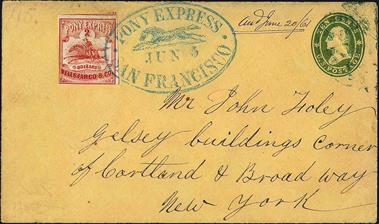 PONY EXPRESS
2
DOLLARS
WELLS FARGO & CO.
PONY EXPRESS
JUN 5
SAN FRANCISCO
And June 20/61
TEN CENTS
Mr John Foley
Gelsey buildings corner
of Cortland & Broad way
New York